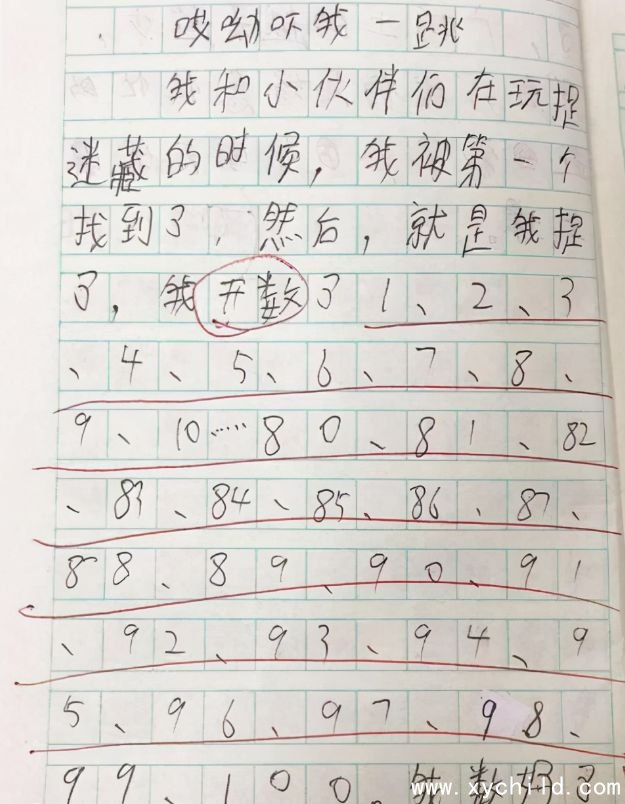 哎呦吓我一跳
我和小伙伴们在玩捉
迷藏的时候，我被第一个
找到了，然后，就是我捉
了，我开数了1、2、3
、4、5、6、7、8、
9、10……80、81、82
、83、84、85、86、87、
88、89、90、91
、92、93、94、9
5、96、97、98、
99、100，我数好了
www.xychild.com